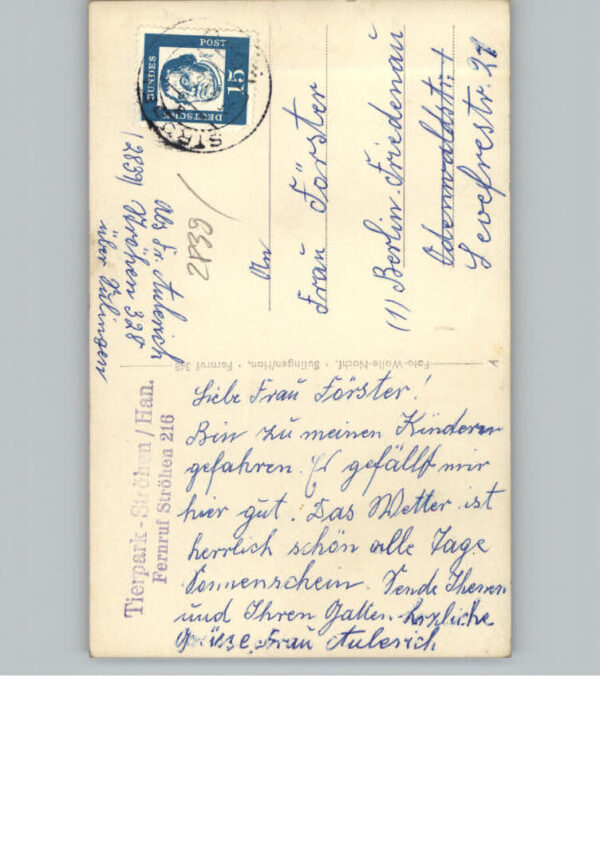 Tierpark-Ströhen/Han.
Fernruf Ströhen 216
Liebe Frau Förster!
Bin zu meinen Kindern
gefahren. Es gefällt mir
hier gut. Das Wetter ist
herrlich schön alle Tage
Sonnenschein. Sende Ihnen
und Ihren Gatten herzliche
Grüsse, Frau Aulerich
Foto-Wolle-Nachf. · Sulingen/Han. · Fernruf 349
Abs Fr. Aulerich
(2839) Ströhen 328
über Sulingen
2839
DEUTSCHE
BUNDES
POST
15
STRÖ
An
Frau Förster
(1) Berlin-Friedenau
Odenwaldstr. +